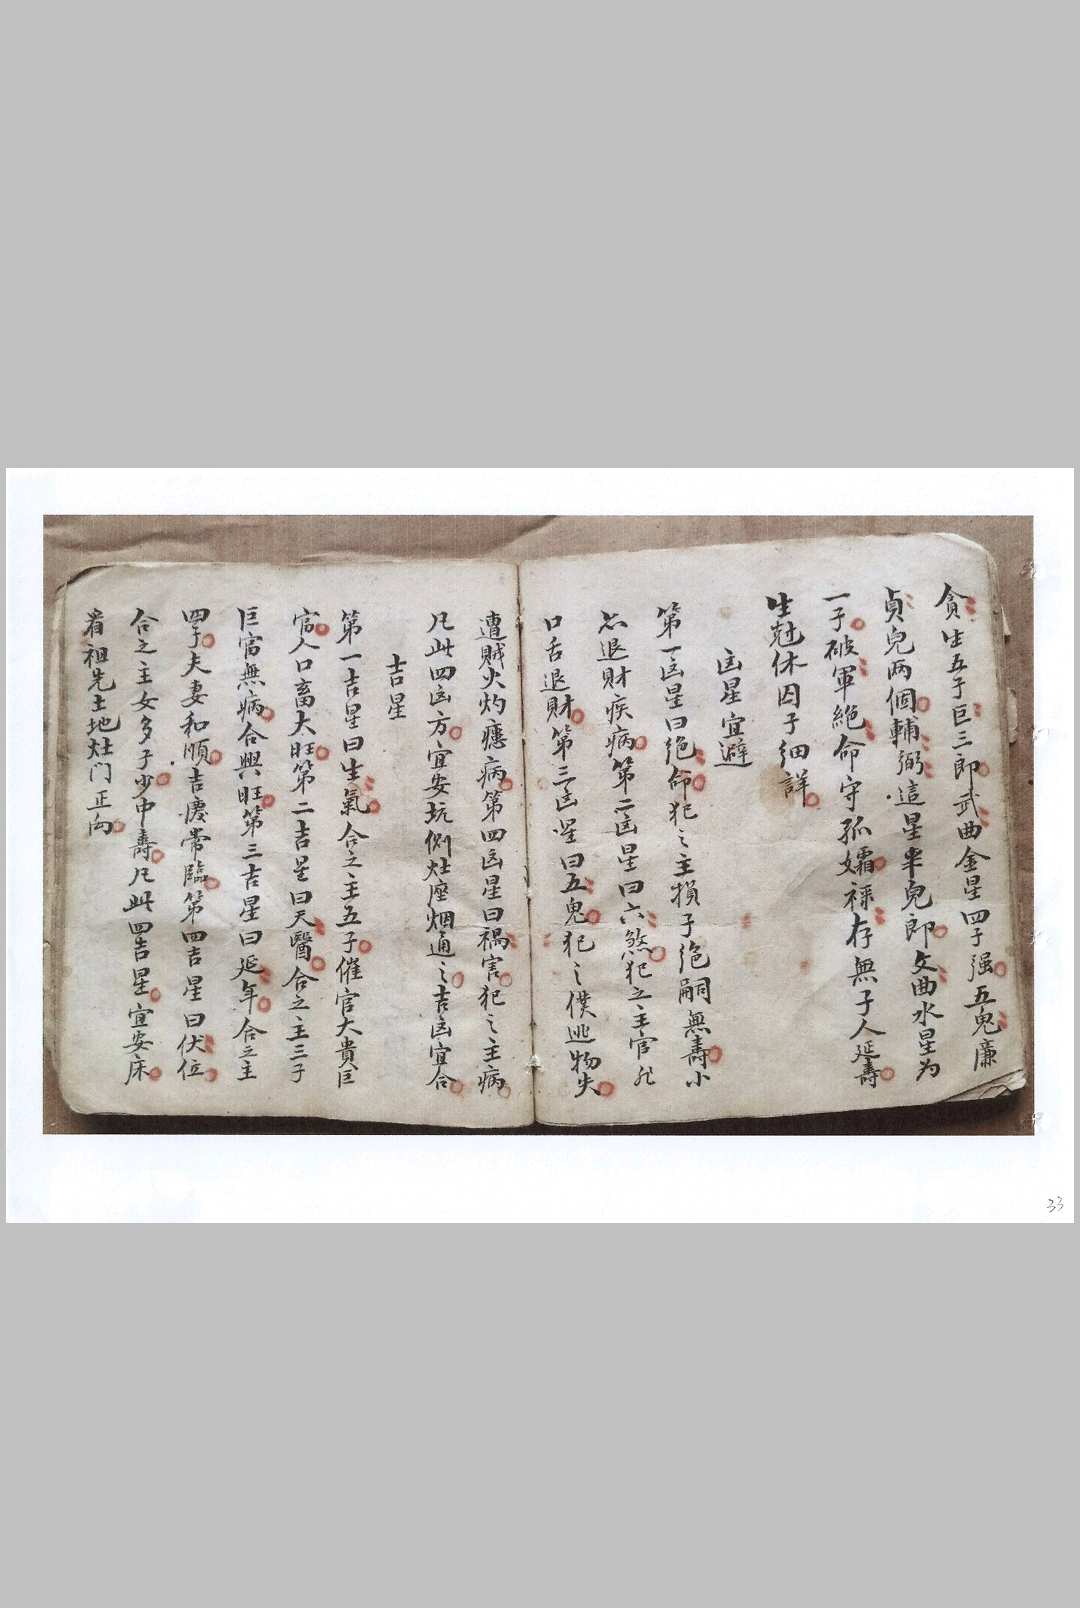 貪生五子巨三郎武曲金星四子强五鬼廉
貞兒两個輔弼這星半兒郎文曲水星为
一子破軍絶命守孤孀禄存無子人延壽
生尅休囚子细詳
凶星宜避
第一凶星曰绝命犯之主損子绝嗣無壽小
口退財疾病第二凶星曰六煞犯之主官非
口舌退財第三凶星曰五鬼犯之僕逃物失
遭賊火灼瘧病第四凶星曰禍害犯之主病
凡此四凶方宜安坑侧灶座烟通之吉凶宜合
吉星
第一吉星曰生氣合之主五子催官大貴巨
富人口畜大旺第二吉星曰天醫合之主三子
巨富無病合興旺第三吉星曰延年合之主
四子夫妻和順吉慶常臨第四吉星曰伏位
合之主女多子少中壽凡此四吉星宜安床
看祖先土地灶门正向
33